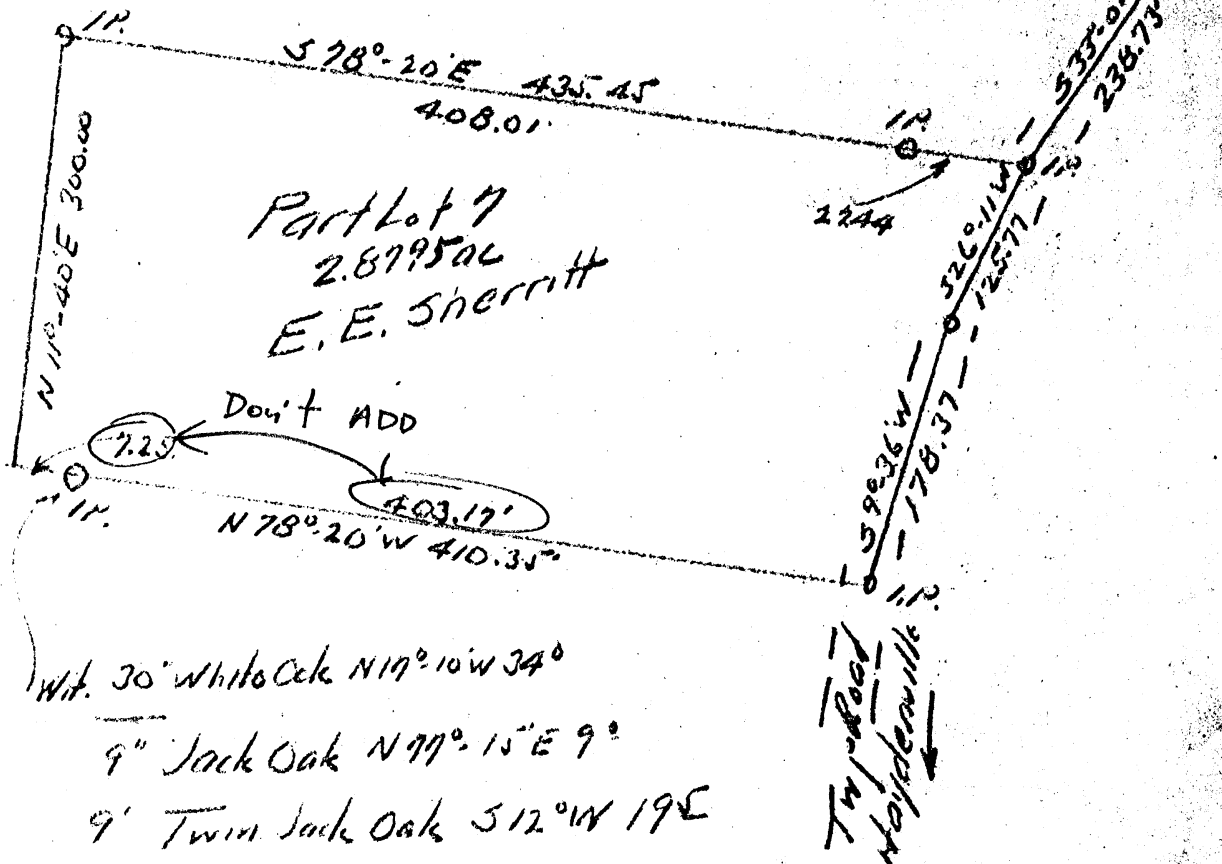 I.P.
S 78°-20'E 435.45
408.01'
I.P.
I.P.
2244
S33°-0
238.73'
N 11°-40'E 300.00
Part Lot 7
2.8795 ac
E. E. Sherritt
S26°-11'W
125.77
Don't ADD
7.25
403.17'
I.P.
N 78°-20'W 410.35'
S9°-36'W
178.37
I.P.
Wit. 30" White Oak N17°-10'W 34°
9" Jack Oak N77°-15'E 9°
9' Twin Jack Oak S12°W 19
Twp Road
Haydenville